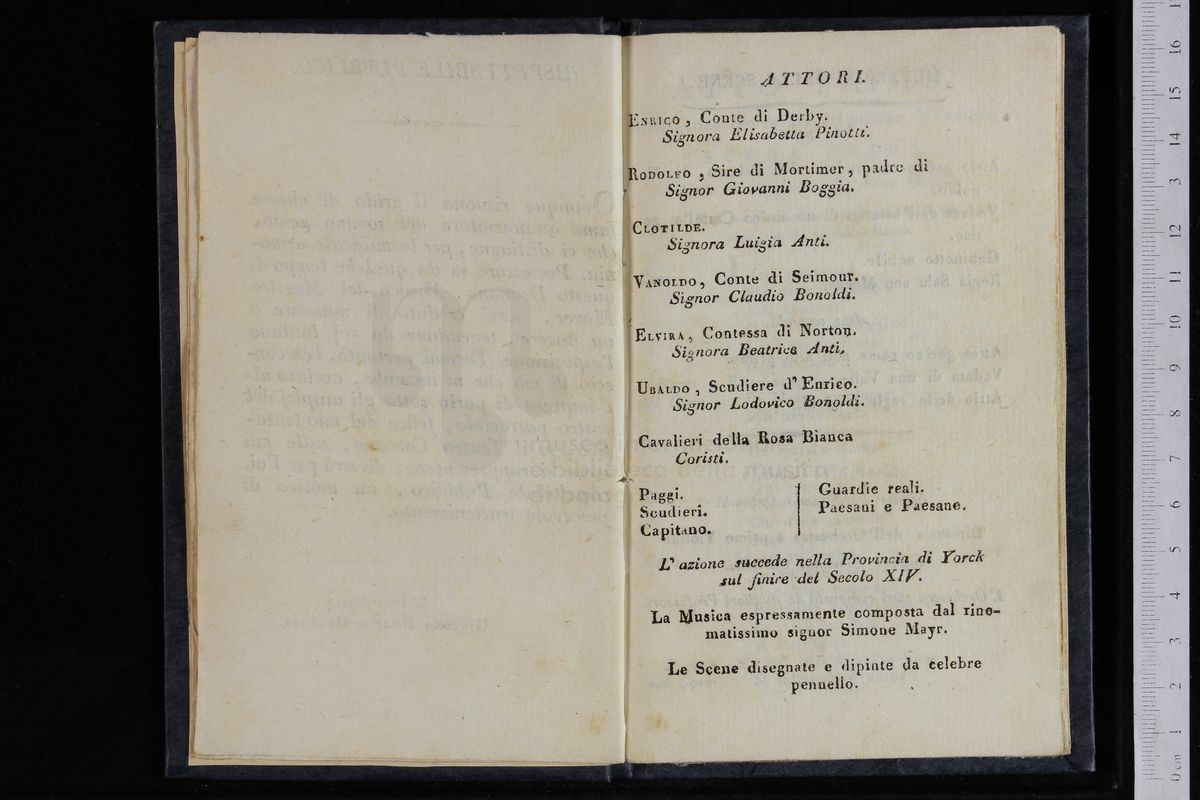 ATTORI.
ENRICO, Conte di Derby.
Signora Elisabetta Pinotti.
RODOLFO, Sire di Mortimer, padre di
Signor Giovanni Boggia.
CLOTILDE.
Signora Luigia Anti.
VANOLDO, Conte di Seimour.
Signor Claudio Bonoldi.
ELVIRA, Contessa di Norton.
Signora Beatrice Anti.
UBALDO, Scudiere d' Enrico.
Signor Lodovico Bonoldi.
Cavalieri della Rosa Bianca
Coristi.
Paggi.
Scudieri.
Capitano.
Guardie reali.
Paesani e Paesane.
L' azione succede nella Provincia di Yorck
sul finire del Secolo XIV.
La Musica espressamente composta dal rino-
matissimo signor Simone Mayr.
Le Scene disegnate e dipinte da celebre
pennello.
0 cm 1 2 3 4 5 6 7 8 9 10 11 12 13 14 15 16